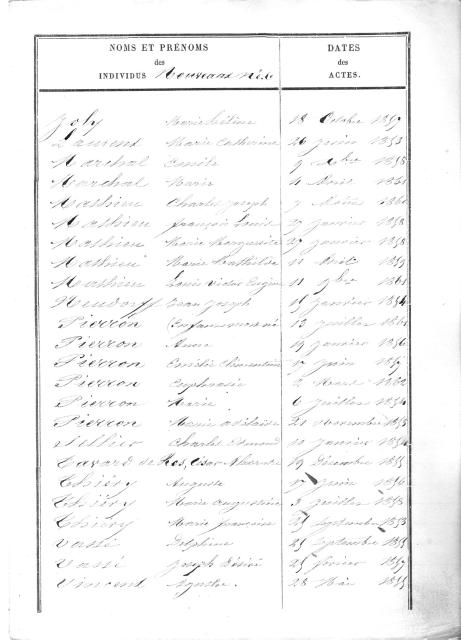 NOMS ET PRÉNOMS
des
INDIVIDUS Nouveaux nés
DATES
des
ACTES.
Joly Marie Céline 18 Octobre 1857
Laurent Marie Catherine 26 Juin 1853
Marchal Emile 9 1858
Marchal Marie 4 Août 1861
Mathieu Charles Joseph 7
Mathieu François Louis 27 Janvier 1858
Mathieu Marie Marguerite 27 Janvier 1858
Mathieu Marie Mathilde 11 1859
Mathieu Louis Victor Eugène 11 9bre 1861
Neudorff Jean Joseph 15 Janvier 1854
Pierron (Enfant mort né 13 Juillet 1861
Pierron Anne 19 Janvier 1856
Pierron Emilie Clémentine 17 Juin
Pierron Euphrasie 2 Mars 1862
Pierron Marie 6 Juillet 1854
Pierron Marie Adélaïde 21 Novembre 1855
Charles Edmond 10 Janvier
Tavard de 19 Décembre 1855
Thiéry Auguste 17 Juin 1856
Thiéry Marie Augustine 3 Juillet 1853
Thiéry Marie Françoise 25 Septembre 1853
Vassé Delphine 25 Septembre 1855
Vassé Joseph Désiré 25 février 1857
Vincent 28 Mai 1855